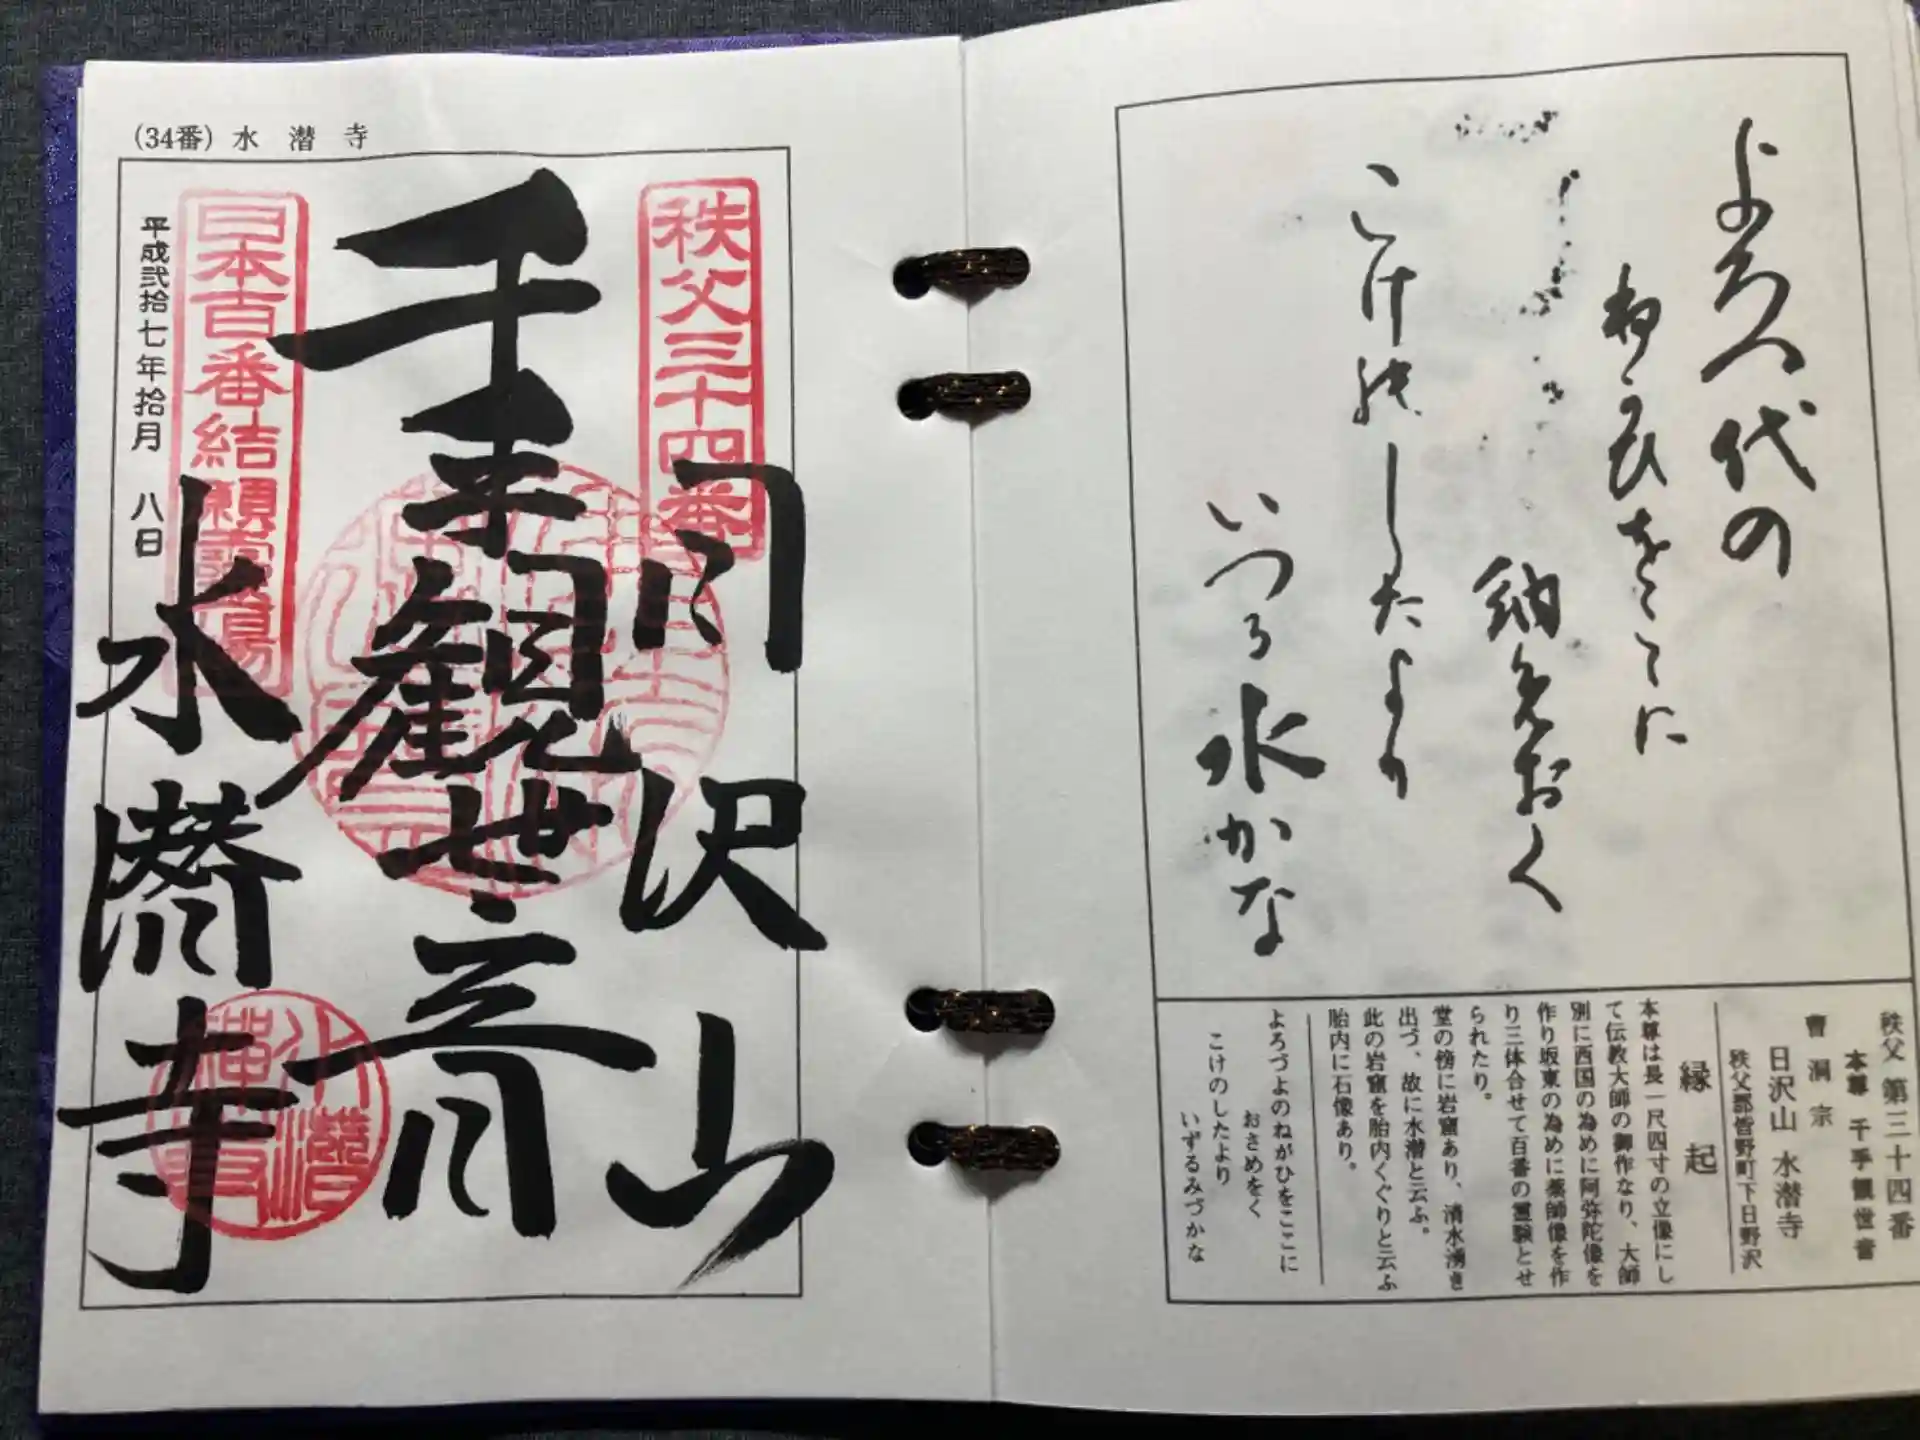 (34番) 水潜寺
秩父三十四番
日沢山
千手観世音
水潜寺
日本百番結願霊場
平成弐拾七年拾月 八日
よろづ代の
ねがひをこゝに
納めおく
こけのしたより
いつる水かな
秩父 第三十四番
本尊 千手観世音
曹洞宗
日沢山 水潜寺
秩父郡皆野町下日野沢
縁起
本尊は長一尺四寸の立像にし
て伝教大師の御作なり、大師
別に西国の為めに阿弥陀像を
作り坂東の為めに薬師像を作
り三体合せて百番の霊験とせ
られたり。
堂の傍に岩窟あり、清水湧き
出づ、故に水潜と云ふ。
此の岩窟を胎内くぐりと云ふ
胎内に石像あり。
よろづよのねがひをここに
おさめをく
こけのしたより
いずるみづかな